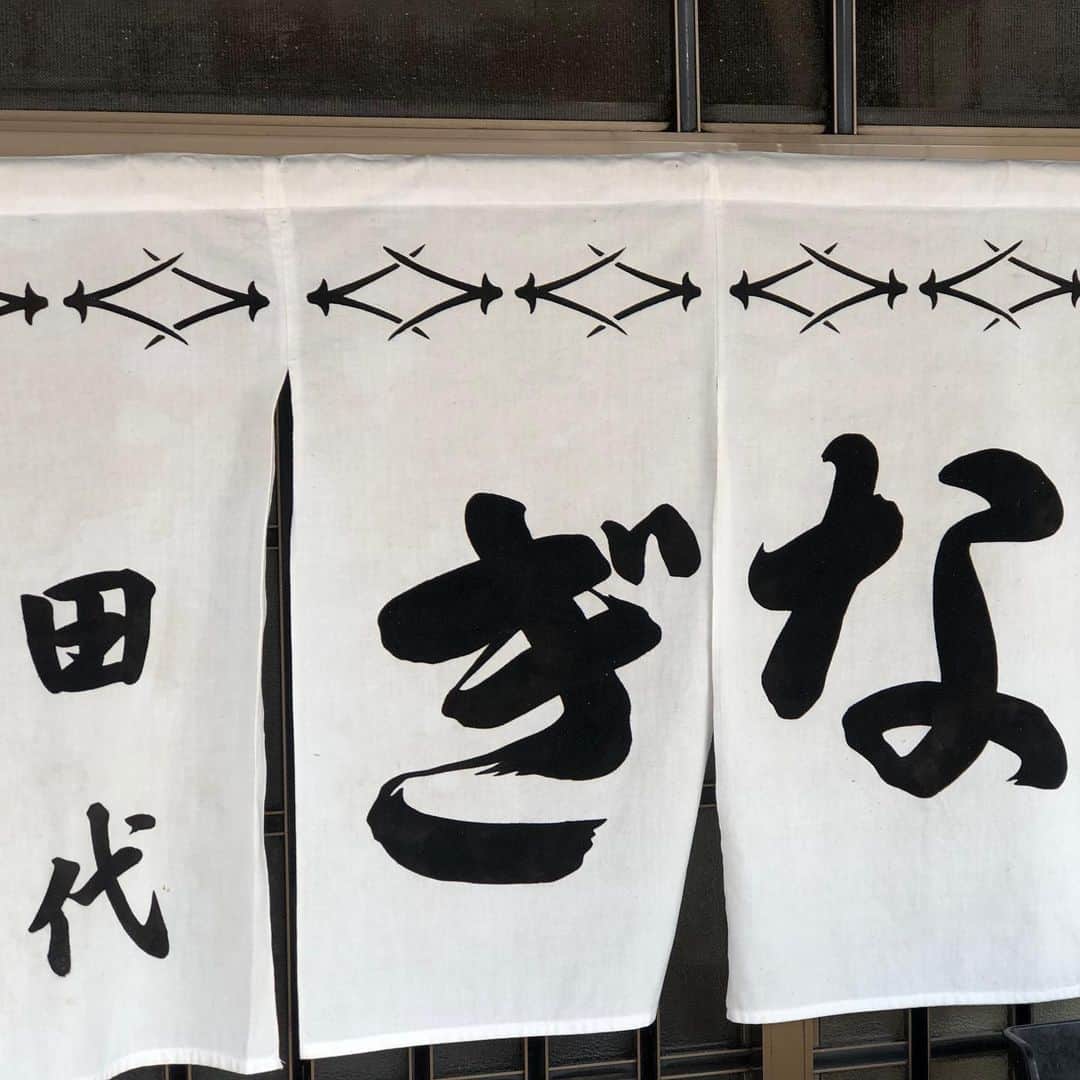 なぎ
田代